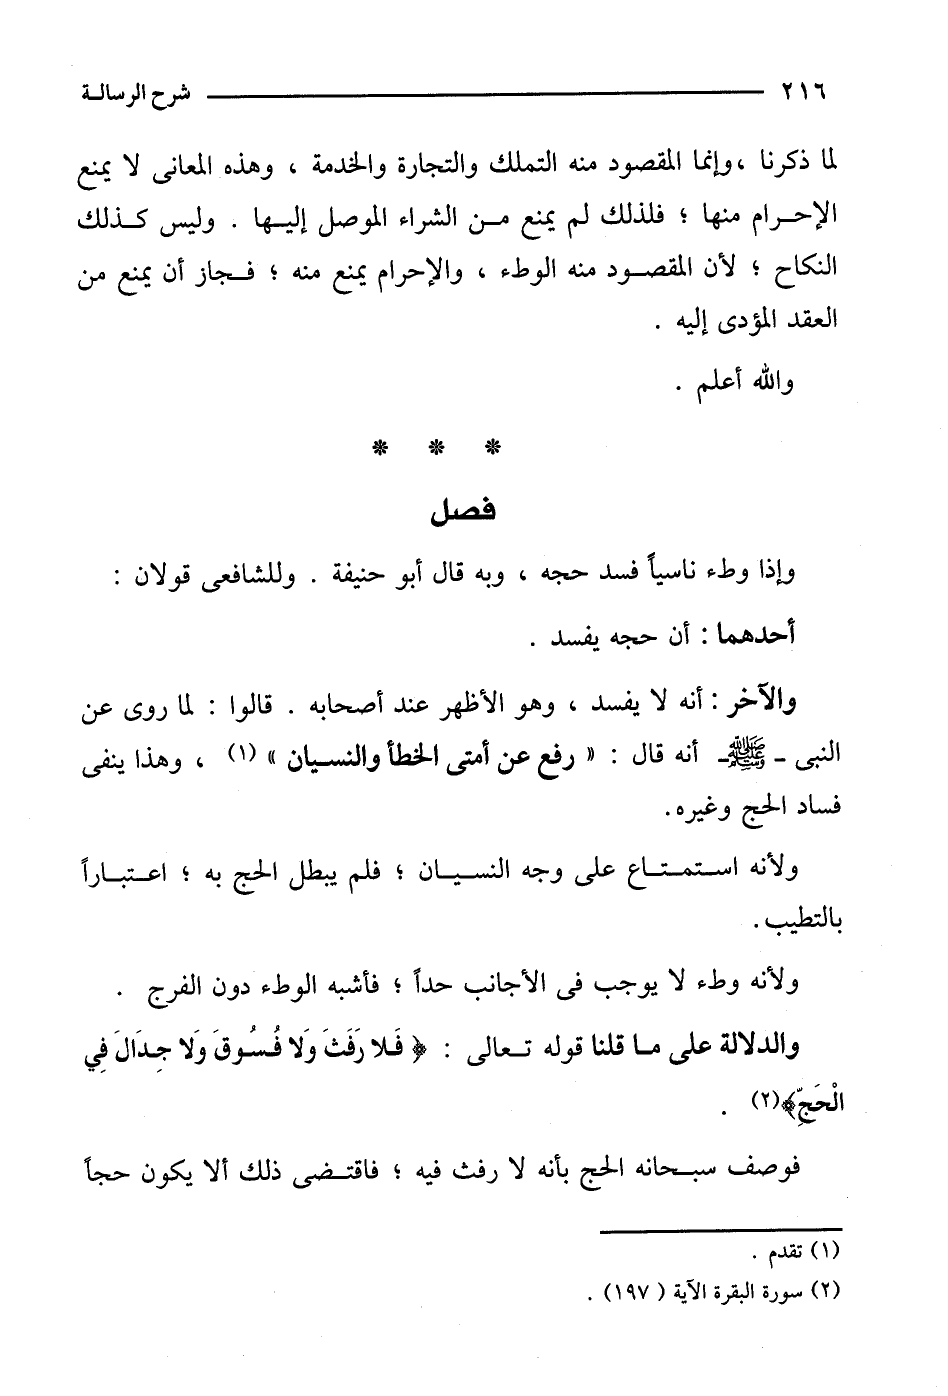 ٢١٦ ــــــــــــــــــــ شرح الرسالـة
لما ذكرنا ،وإنما المقصود منه التملك والتجارة والخدمة ، وهذه المعانى لا يمنع
الإحـرام منها ؛ فلذلك لم يمنع مـن الشراء الموصل إليـها . وليس كـذلك
النكاح ؛ لأن المقصـود منه الوطء ، والإحرام يمنع منه ؛ فـجاز أن يمنع من
العقد المؤدى إليه .
والله أعلم .
* * *
فصل
وإذا وطء ناسياً فسد حجه ، وبه قال أبو حنيفة . وللشافعى قولان :
أحدهما : أن حجه يفسد .
والآخر : أنه لا يفسد ، وهو الأظهر عند أصحابه . قالوا : لما روى عن
النبى ـ ﷺـ أنه قال : « رفع عن أمتى الخطأ والنسيان » (١) ، وهذا ينفى
فساد الحج وغيره.
ولأنه استمتـاع على وجه النسيـان ؛ فلم يبطل الحج به ؛ اعتبـاراً
بالتطيب.
ولأنه وطء لا يوجب فى الأجانب حداً ؛ فأشبه الوطء دون الفرج .
والدلالة على مـا قلنا قوله تـعالى : ﴿ فَلا رَفَثَ وَلا فُسُوقَ وَلا جِدَالَ فِي
الْحَجِّ﴾(٢) .
فوصف سبـحانه الحج بأنه لا رفث فيه ؛ فاقتـضى ذلك ألا يكون حجاً
(١) تقدم .
(٢) سورة البقرة الآية ( ١٩٧) .